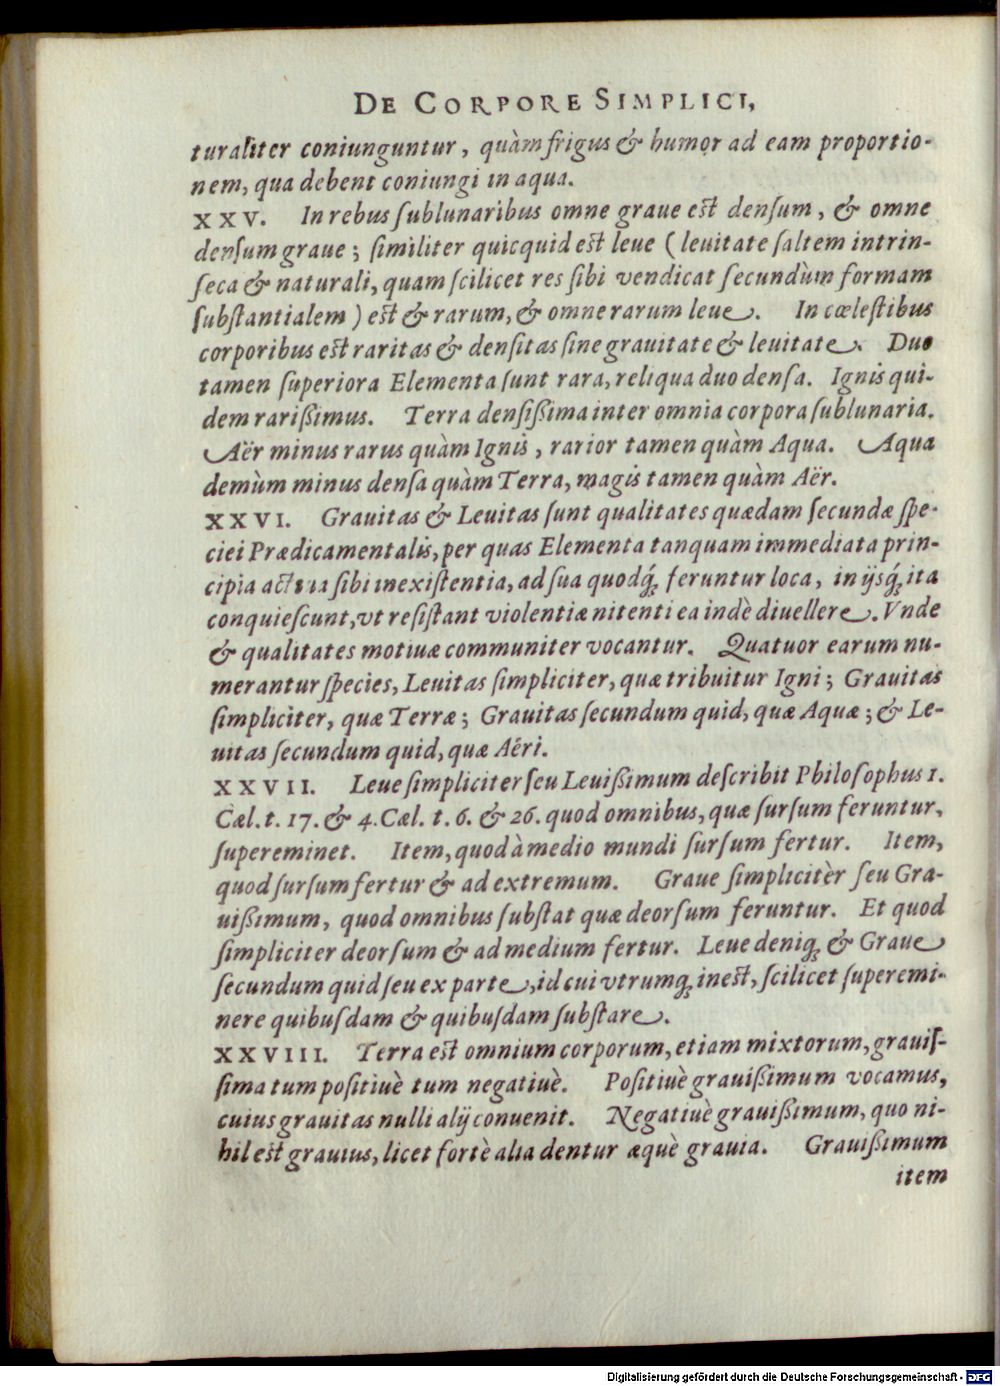 DE CORPORE SIMPLICI,
turaliter coniunguntur, quàm frigus & humor ad eam proportio-
nem, qua debent coniungi in aqua.
XXV. In rebus ſublunaribus omne graue est denſum, & omne
denſum graue; ſimiliter quicquid est leue (leuitate ſaltem intrin-
ſeca & naturali, quam ſcilicet res ſibi vendicat ſecundùm formam
ſubſtantialem) est & rarum, & omne rarum leue. In cœleſtibus
corporibus est raritas & denſitas ſine grauitate & leuitate. Duo
tamen ſuperiora Elementa ſunt rara, reliqua duo denſa. Ignis qui-
dem rarißimus. Terra denſißima inter omnia corpora ſublunaria.
Aër minus rarus quàm Ignis, rarior tamen quàm Aqua. Aqua
demùm minus denſa quàm Terra, magis tamen quàm Aër.
XXVI. Grauitas & Leuitas ſunt qualitates quædam ſecundæ ſpe-
ciei Prædicamentalis, per quas Elementa tanquam immediata prin-
cipia actiua ſibi inexiſtentia, ad ſua quodq́ꝫ feruntur loca, in ijsq́ꝫ ita
conquieſcunt, vt reſiſtant violentiæ nitenti ea indè diuellere. Vnde
& qualitates motiuæ communiter vocantur. Quatuor earum nu-
merantur ſpecies, Leuitas ſimpliciter, quæ tribuitur Igni; Grauitas
ſimpliciter, quæ Terræ; Grauitas ſecundum quid, quæ Aquæ; & Le-
uitas ſecundum quid, quæ Aëri.
XXVII. Leue ſimpliciter ſeu Leuißimum deſcribit Philoſophus 1.
Cæl. t. 17. & 4. Cæl. t. 6. & 26. quod omnibus, quæ ſurſum feruntur,
ſupereminet. Item, quod à medio mundi ſurſum fertur. Item,
quod ſurſum fertur & ad extremum. Graue ſimplicitèr ſeu Gra-
uißimum, quod omnibus ſubſtat quæ deorſum feruntur. Et quod
ſimpliciter deorſum & ad medium fertur. Leue deniqꝫ & Graue
ſecundum quid ſeu ex parte, id cui vtrumqꝫ inest, ſcilicet ſuperemi-
nere quibuſdam & quibuſdam ſubſtare.
XXVIII. Terra est omnium corporum, etiam mixtorum, grauiſ-
ſima tum poſitiuè tum negatiuè. Poſitiuè grauißimum vocamus,
cuius grauitas nulli alij conuenit. Negatiuè grauißimum, quo ni-
hil est grauius, licet fortè alia dentur æquè grauia. Grauißimum
item
Digitalisierung gefördert durch die Deutsche Forschungsgemeinschaft - DFG